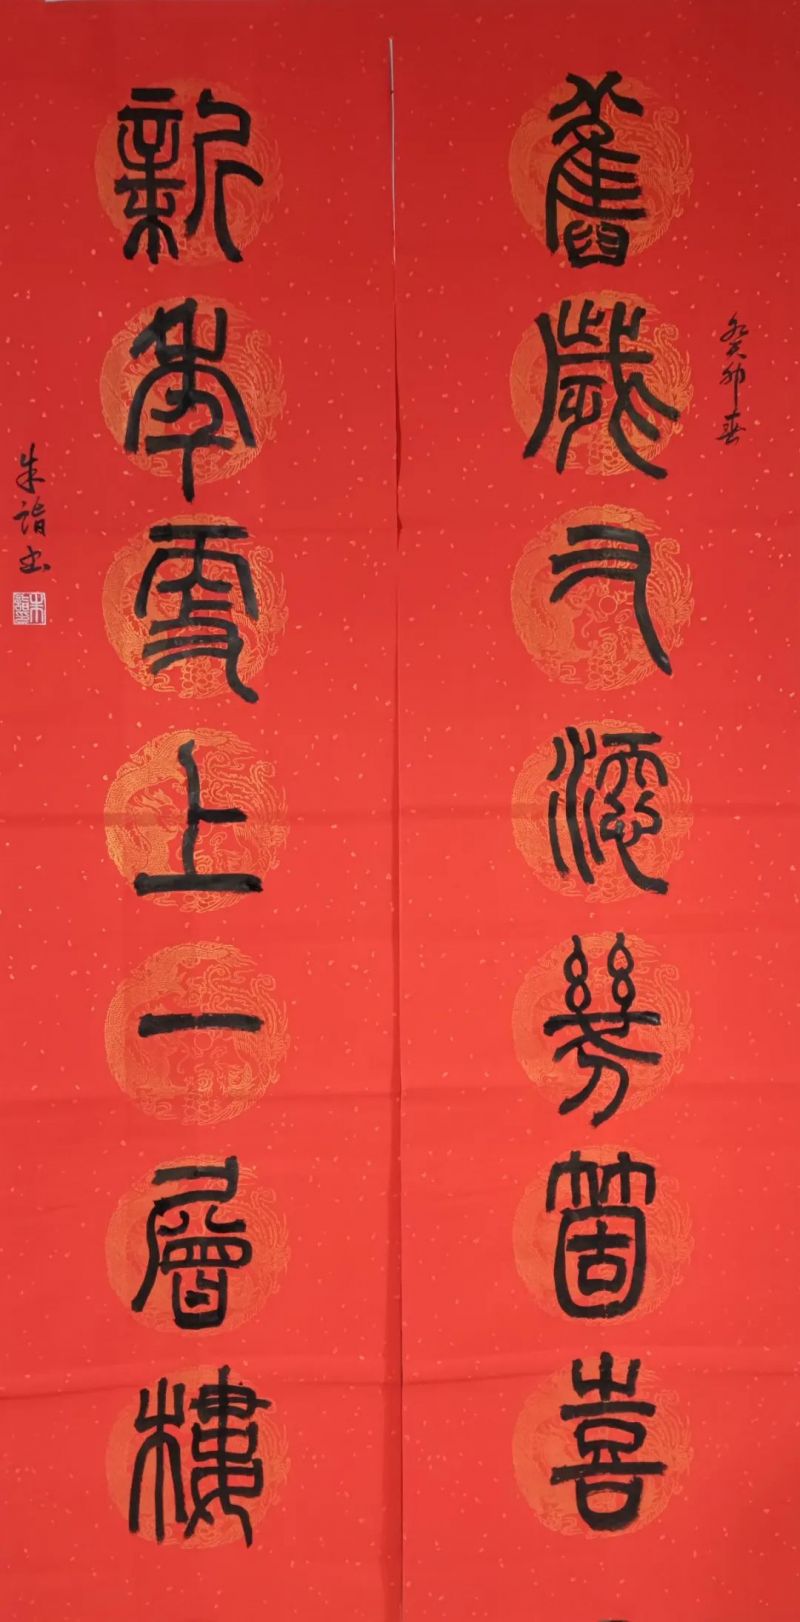 舊歲又添幾箇喜
癸卯春
新年更上一層樓
朱詣书